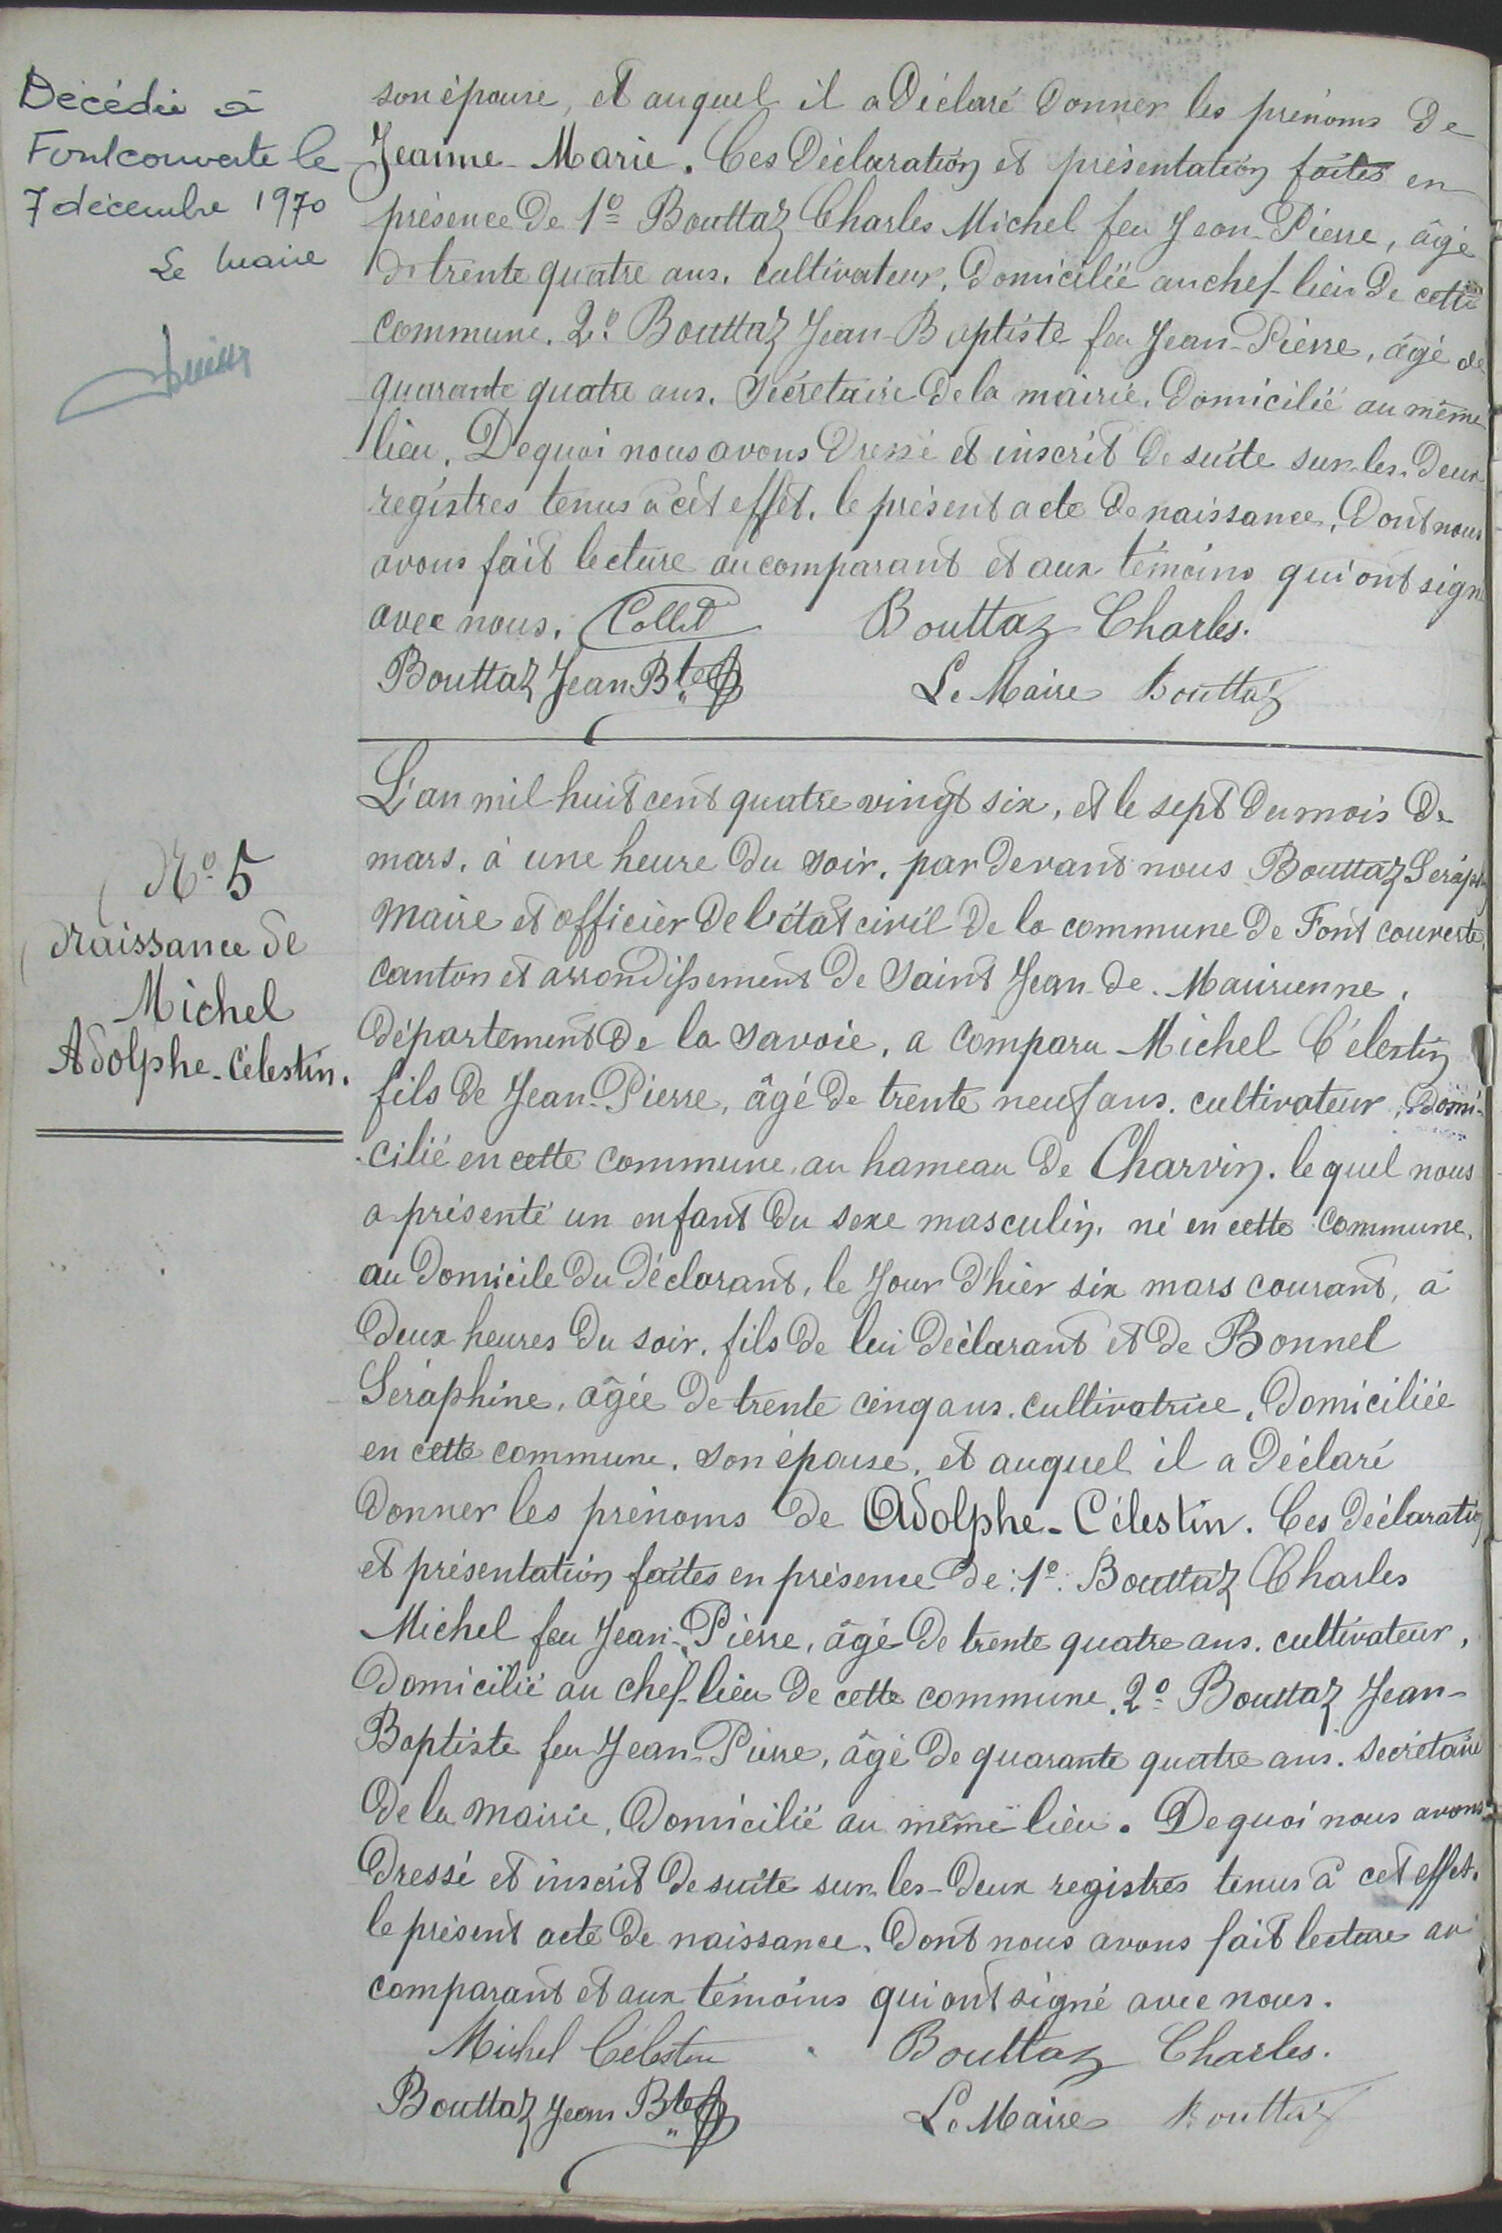 Décédée à
Fontcouverte le
7 décembre 1970
Le Maire
son épouse, et auquel il a déclaré donner les prénoms de
Jeanne-Marie. Ces déclaration et présentation faites en
présence de 1º Bouttaz Charles Michel feu Jean-Pierre, âgé
de trente quatre ans, cultivateur, domicilié au chef-lieu de cette
commune. 2º Bouttaz Jean-Baptiste feu Jean-Pierre, âgé de
quarante quatre ans, secrétaire de la mairie, domicilié au même
lieu. De quoi nous avons dressé et inscrit de suite sur les deux
registres tenus à cet effet, le présent acte de naissance, dont nous
avons fait lecture au comparant et aux témoins qui ont signé
avec nous. Collet Bouttaz Charles.
Bouttaz Jean Bte Le Maire Bouttaz
Nº 5
Naissance de
Michel
Adolphe-Célestin.
L'an mil huit cent quatre vingt six, et le sept du mois de
mars, à une heure du soir, par devant nous Bouttaz Séraphin
maire et officier de l'état civil de la commune de Font couverte,
canton et arrondissement de Saint Jean de Maurienne,
département de la Savoie, a comparu Michel Célestin
fils de Jean-Pierre, âgé de trente neuf ans, cultivateur, domi-
cilié en cette commune, au hameau de Charvin, lequel nous
a présenté un enfant du sexe masculin, né en cette commune,
au domicile du déclarant, le jour d'hier six mars courant, à
deux heures du soir, fils de lui déclarant et de Bonnel
Séraphine, âgée de trente cinq ans, cultivatrice, domiciliée
en cette commune, son épouse, et auquel il a déclaré
donner les prénoms de Adolphe-Célestin. Ces déclaration
et présentation faites en présence de: 1º. Bouttaz Charles
Michel feu Jean-Pierre, âgé de trente quatre ans, cultivateur,
domicilié au chef-lieu de cette commune. 2º Bouttaz Jean-
Baptiste feu Jean-Pierre, âgé de quarante quatre ans, secrétaire
de la mairie, domicilié au même lieu. De quoi nous avons
dressé et inscrit de suite sur les deux registres tenus à cet effet,
le présent acte de naissance, dont nous avons fait lecture au
comparant et aux témoins qui ont signé avec nous.
Michel Célestin Bouttaz Charles.
Bouttaz Jean Bte Le Maire Bouttaz